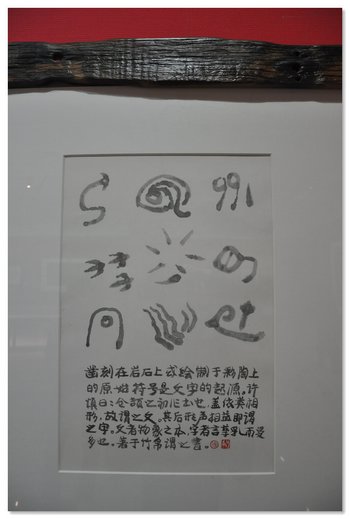 凿刻在岩石上或绘制于彩陶上
的原始符号是文字的起源。许
慎曰:仓颉之初作书也,盖依类相
形,故谓之文。其后形声相益即谓
之字。文者物象之本,字者言孳乳而
多也。著于竹帛谓之书。